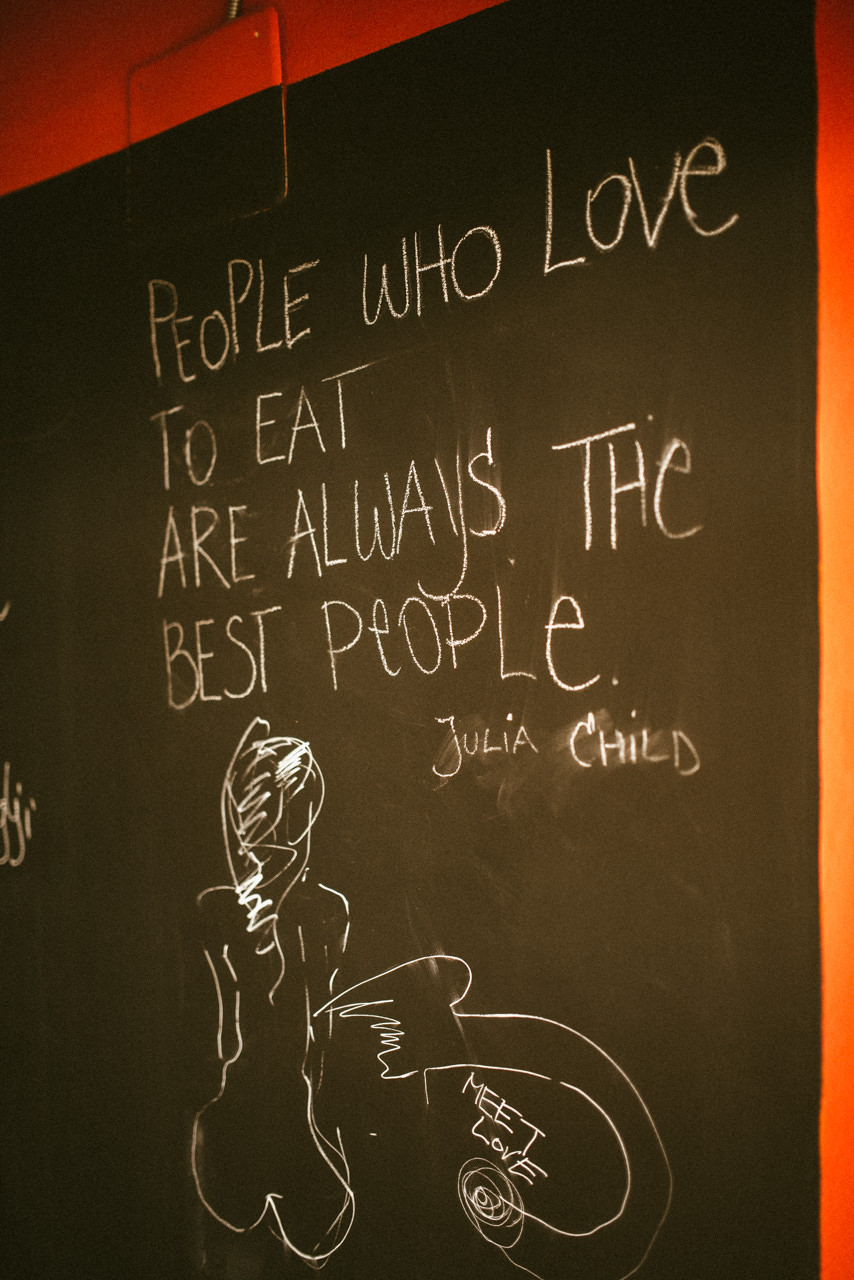 PEOPLE WHO LOVE
TO EAT
ARE ALWAYS THE
BEST PEOPLE.
JULIA CHILD
MEET
LOVE